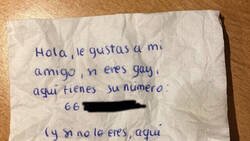 Hola, le gustas a mi
amigo, si eres gay,
aquí tienes su número:
66
(y si no lo eres, aquí